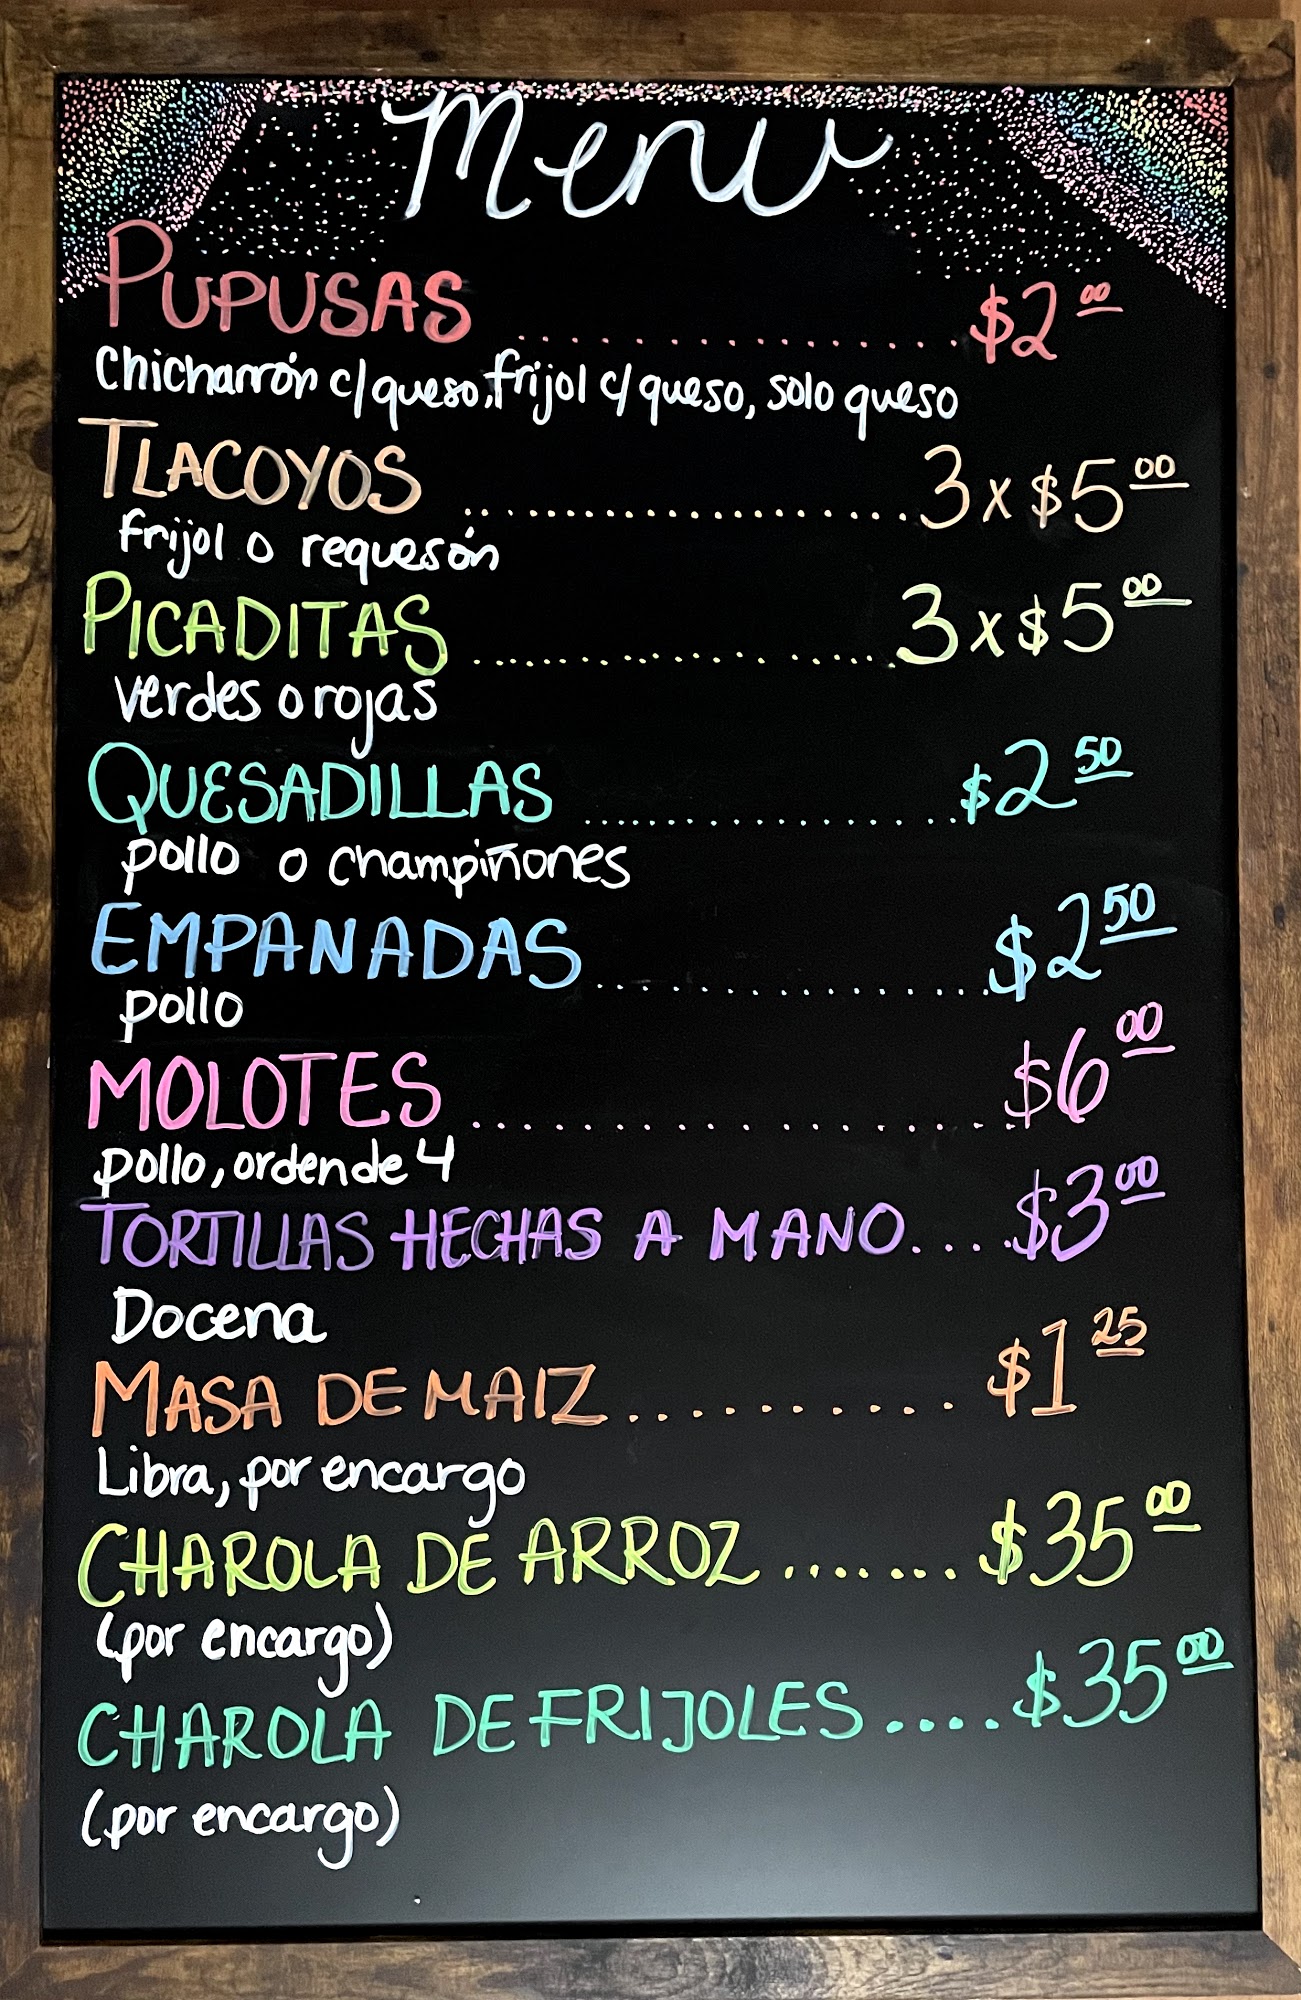 Menu
PUPUSAS .................. $2.00
chicharrón c/queso, frijol c/queso, solo queso
TLACOYOS .................... 3x$5.00
frijol o requesón
PICADITAS .................. 3x$5.00
verdes o rojas
QUESADILLAS .................. $2.50
pollo o champiñones
EMPANADAS .................. $2.50
pollo
MOLOTES .................. $6.00
pollo, orden de 4
TORTILLAS HECHAS A MANO .... $3.00
Docena
MASA DE MAIZ ........... $1.25
Libra, por encargo
CHAROLA DE ARROZ ....... $35.00
(por encargo)
CHAROLA DE FRIJOLES .... $35.00
(por encargo)